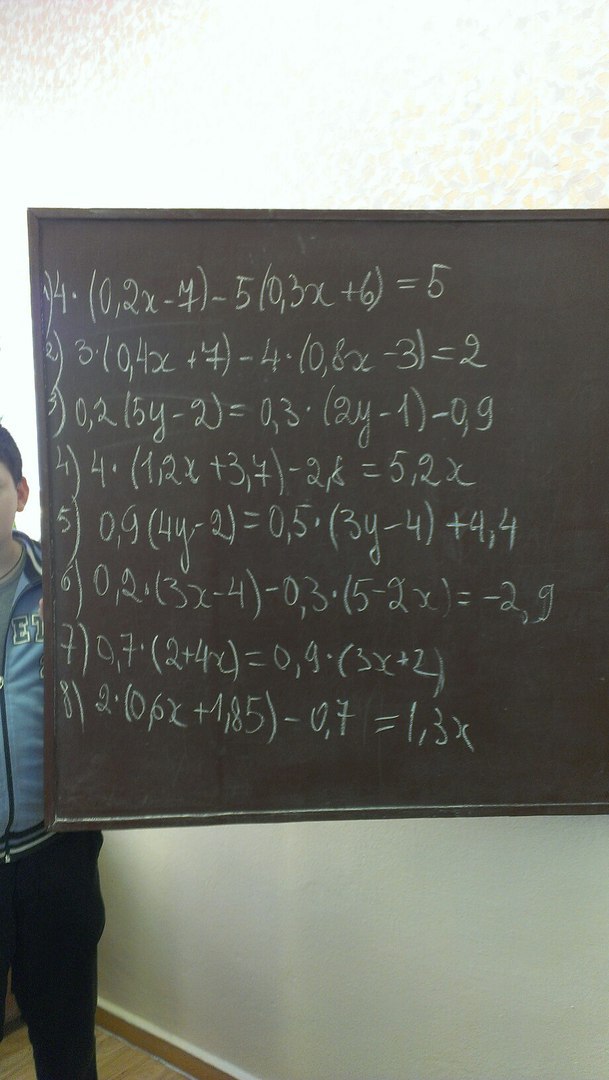 1) 4·(0,2x-7)-5(0,3x+6)=5
2) 3·(0,4x+7)-4·(0,8x-3)=2
3) 0,2(5y-2)=0,3·(2y-1)-0,9
4) 4·(1,2x+3,7)-2,8=5,2x
5) 0,9(4y-2)=0,5·(3y-4)+4,4
6) 0,2·(3x-4)-0,3·(5-2x)=-2,9
7) 0,7·(2+4x)=0,9·(3x+2)
8) 2·(0,6x+1,85)-0,7=1,3x